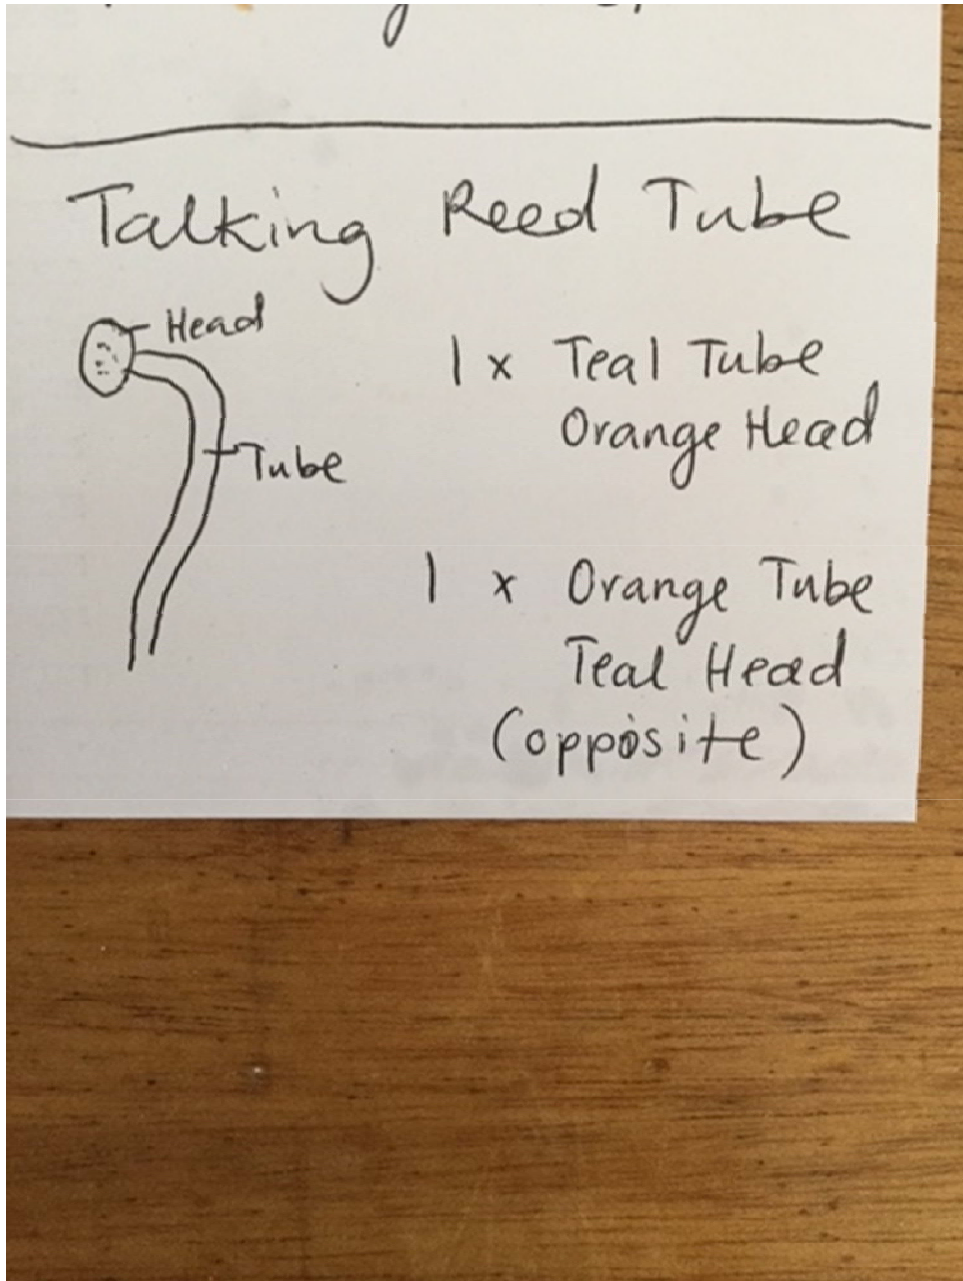 Talking Reed Tube
Head
Tube
1 x Teal Tube
Orange Head
1 x Orange Tube
Teal Head
(opposite)